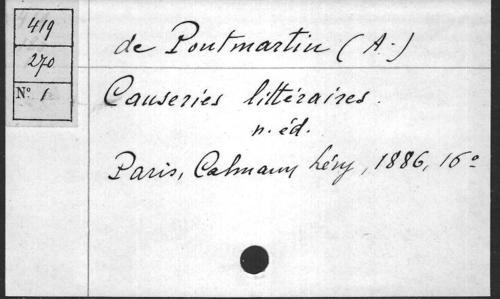 419
270
N° 1
de Pontmartin (A.)
Causeries littéraires.
n. éd.
Paris, Calmann Lévy, 1886, 16°